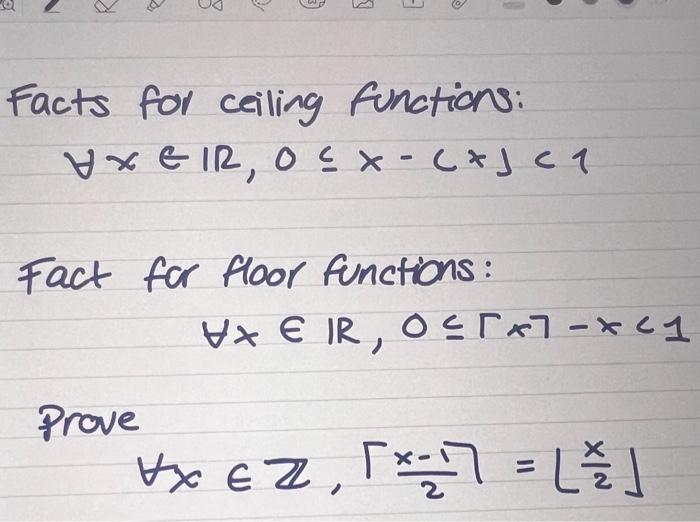 Facts for ceiling functions:
∀x ∈ ℝ, 0 ≤ x - ⌊x⌋ < 1
Fact for floor functions:
∀x ∈ ℝ, 0 ≤ ⌈x⌉ - x < 1
Prove
∀x ∈ ℤ, ⌈(x-1)/2⌉ = ⌊x/2⌋